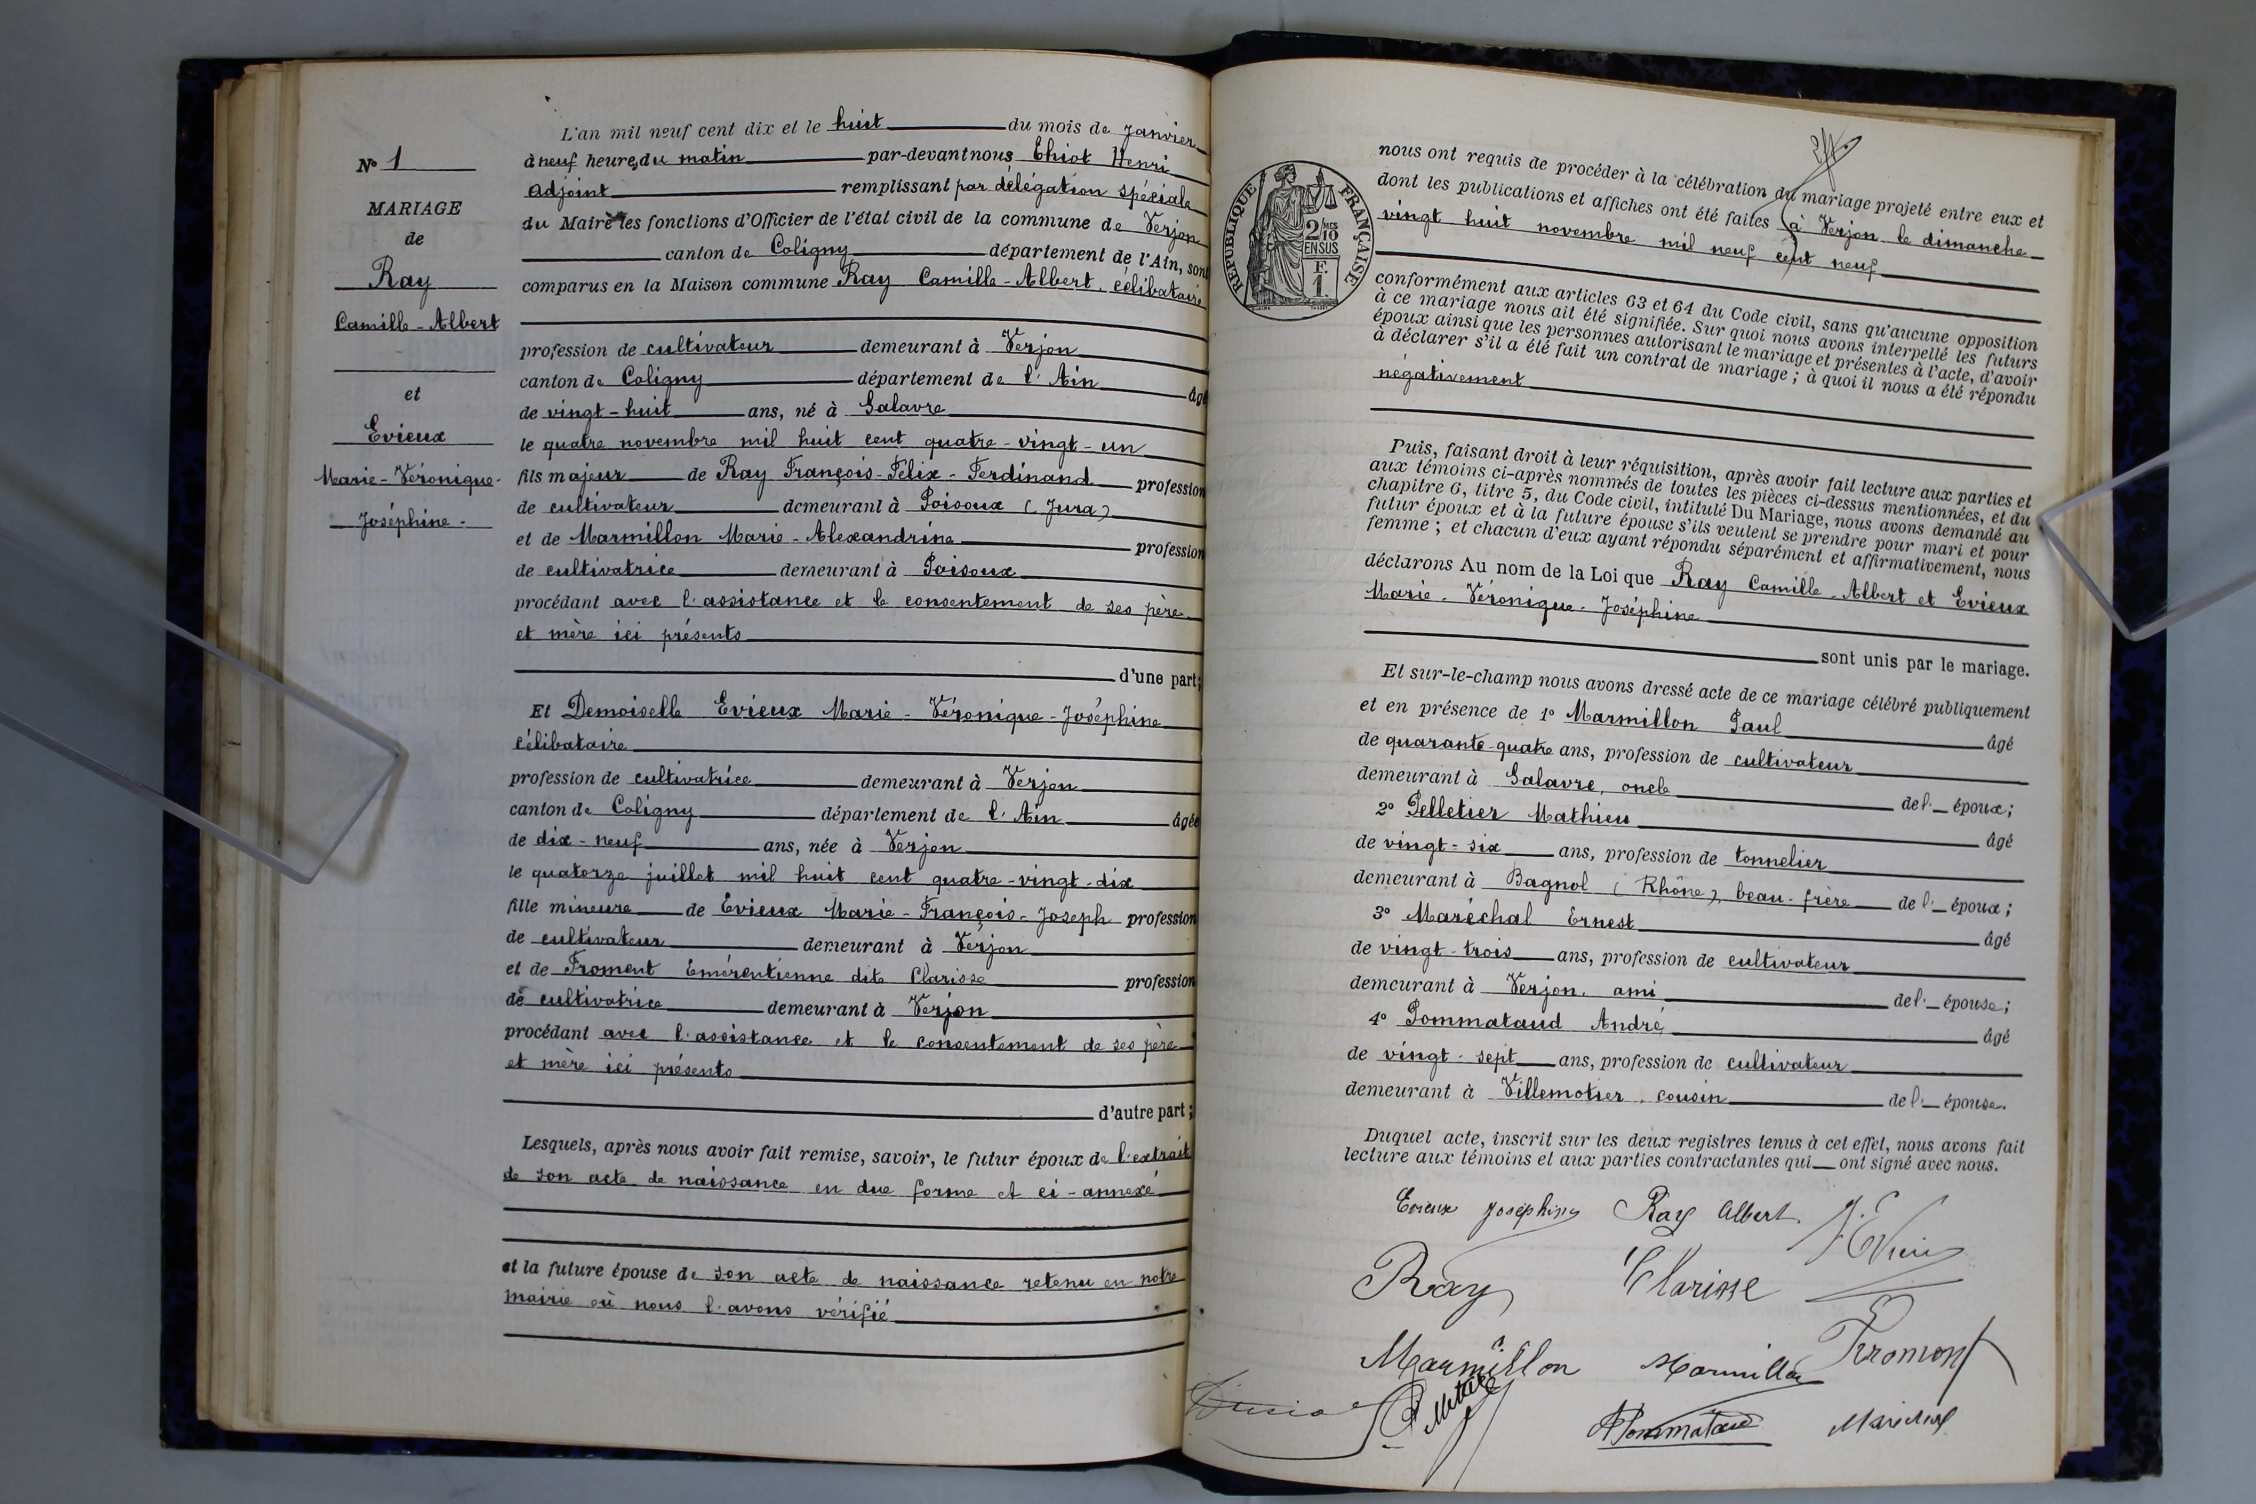 N° 1
MARIAGE
de
Ray
Camille-Albert
et
Evieux
Marie-Véronique-
Joséphine-
L'an mil neuf cent dix et le huit du mois de janvier
à neuf heures du matin par-devant nous Chiot Henri
adjoint remplissant par délégation spéciale
du Maire les fonctions d'Officier de l'état civil de la commune de Verjon
canton de Coligny département de l'Ain, sont
comparus en la Maison commune Ray Camille-Albert, célibataire
profession de cultivateur demeurant à Verjon
canton de Coligny département de l'Ain âgé
de vingt-huit ans, né à Salavre
le quatre novembre mil huit cent quatre-vingt-un
fils majeur de Ray François-Félix-Ferdinand profession
de cultivateur demeurant à Poisoux (Jura)
et de Marmillon Marie-Alexandrine profession
de cultivatrice demeurant à Poisoux
procédant avec l'assistance et le consentement de ses père
et mère ici présents
d'une part;
Et Demoiselle Evieux Marie-Véronique-Joséphine
célibataire
profession de cultivatrice demeurant à Verjon
canton de Coligny département de l'Ain âgée
de dix-neuf ans, née à Verjon
le quatorze juillet mil huit cent quatre-vingt-dix
fille mineure de Evieux Marie-François-Joseph profession
de cultivateur demeurant à Verjon
et de Froment Emérentienne dite Clarisse profession
de cultivatrice demeurant à Verjon
procédant avec l'assistance et le consentement de ses père
et mère ici présents
d'autre part;
Lesquels, après nous avoir fait remise, savoir, le futur époux de l'extrait
de son acte de naissance en due forme et ci-annexé
et la future épouse de son acte de naissance retenu en notre
mairie où nous l'avons vérifié
RÉPUBLIQUE FRANÇAISE
2/10 MES
EN SUS
F.
1.
nous ont requis de procéder à la célébration du mariage projeté entre eux et
dont les publications et affiches ont été faites à Verjon le dimanche
vingt huit novembre mil neuf cent neuf
conformément aux articles 63 et 64 du Code civil, sans qu'aucune opposition
à ce mariage nous ait été signifiée. Sur quoi nous avons interpellé les futurs
époux ainsi que les personnes autorisant le mariage et présentes à l'acte, d'avoir
à déclarer s'il a été fait un contrat de mariage; à quoi il nous a été répondu
négativement
Puis, faisant droit à leur réquisition, après avoir fait lecture aux parties et
aux témoins ci-après nommés de toutes les pièces ci-dessus mentionnées, et du
chapitre 6, titre 5, du Code civil, intitulé Du Mariage, nous avons demandé au
futur époux et à la future épouse s'ils veulent se prendre pour mari et pour
femme; et chacun d'eux ayant répondu séparément et affirmativement, nous
déclarons Au nom de la Loi que Ray Camille-Albert et Evieux
Marie-Véronique-Joséphine
sont unis par le mariage.
Et sur-le-champ nous avons dressé acte de ce mariage célébré publiquement
et en présence de 1° Marmillon Paul âgé
de quarante-quatre ans, profession de cultivateur
demeurant à Salavre, oncle de l'époux;
2° Pelletier Mathieu âgé
de vingt-six ans, profession de tonnelier
demeurant à Bagnol (Rhône), beau-frère de l'époux;
3° Maréchal Ernest âgé
de vingt-trois ans, profession de cultivateur
demeurant à Verjon, ami de l'épouse;
4° Pommataud André âgé
de vingt-sept ans, profession de cultivateur
demeurant à Villemotier, cousin de l'épouse.
Duquel acte, inscrit sur les deux registres tenus à cet effet, nous avons fait
lecture aux témoins et aux parties contractantes qui ont signé avec nous.
Evieux Joséphine Ray Albert. J. Evieux
Ray Clarisse
Marmillon Marmillon Froment
Pelletier Pommataud Maréchal